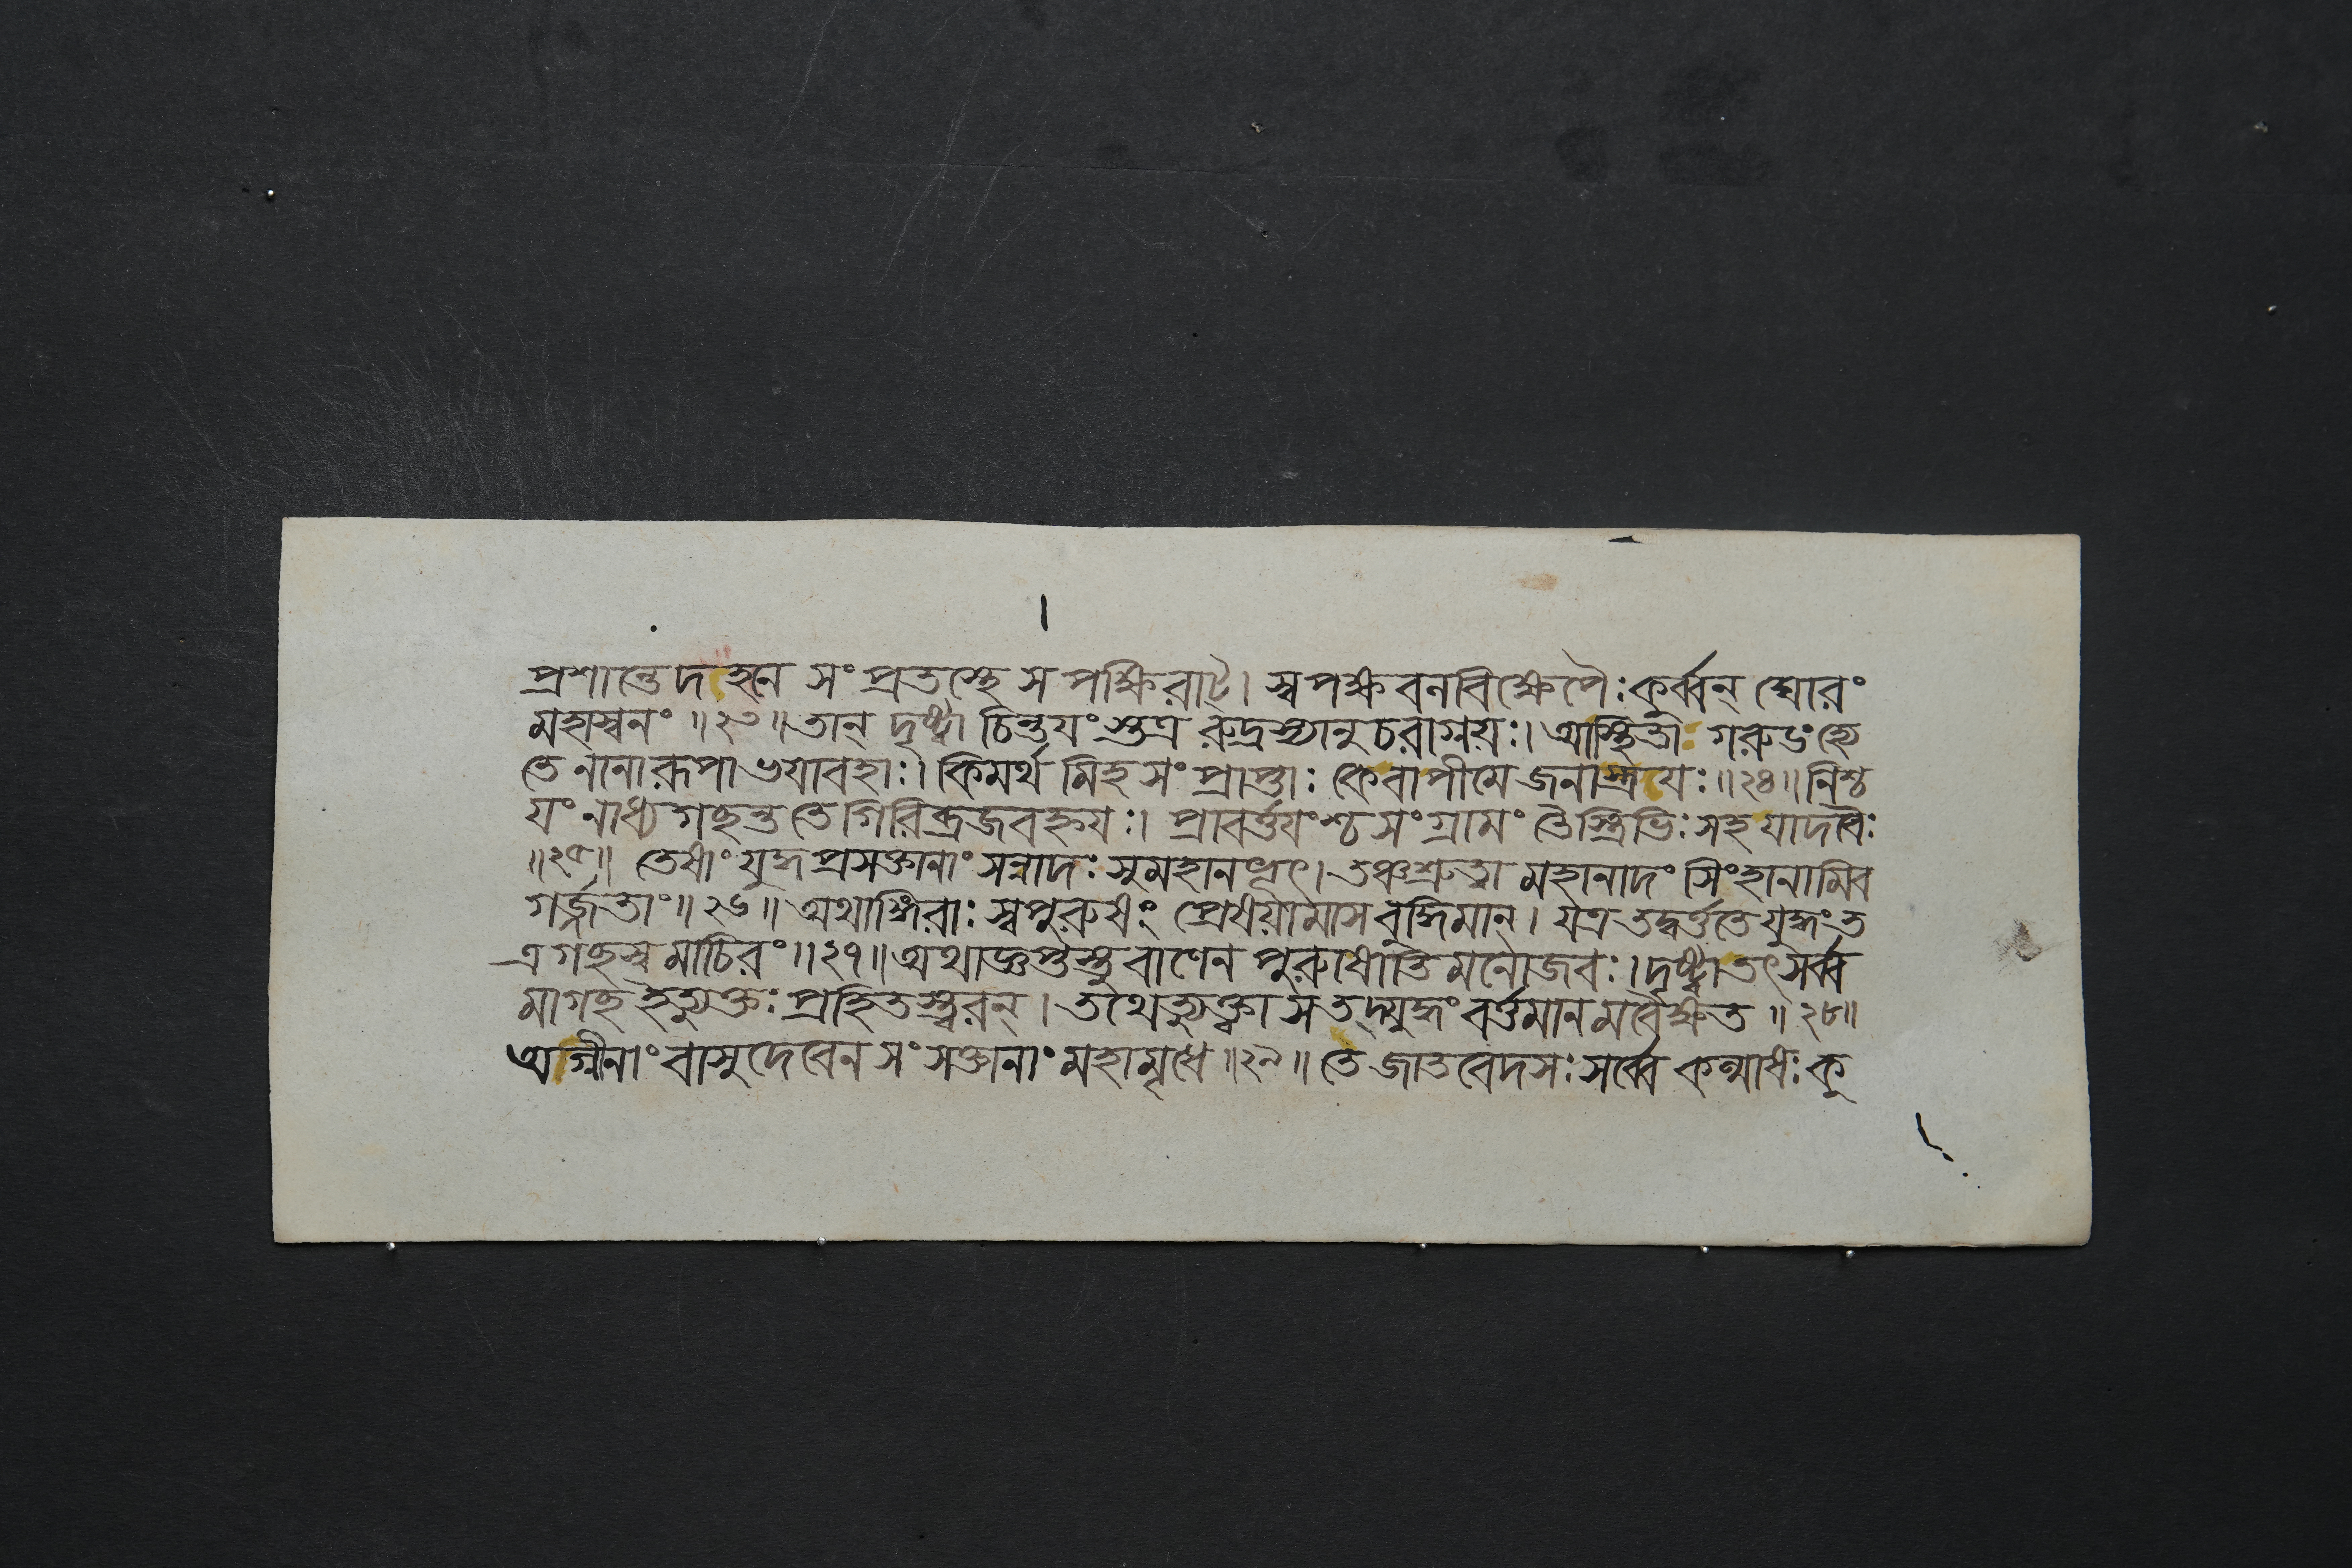 প্রশান্তেদহনে সংপ্রতস্থে স পক্ষিরাট্। স্বপক্ষবনবিক্ষেপৈঃকুর্ব্বন্ ঘোরং
মহাস্বনং ॥২৩॥তান্ দৃষ্ট্বা চিন্তয়ংস্তত্র রুদ্রস্যানুচরাগ্নয়ঃ।আস্থিতা গরুডংহ্যে
তে নানারূপা ভয়াবহাঃ। কিমর্থমিহ সংপ্রাপ্তাঃ কেবাপীমে জনাস্ত্রয়ঃ॥২৪॥নিশ্চ
য়ং নাধ্যগছন্ত তে গিরিব্রজবহ্নয়ঃ। প্রাবর্ত্তয়ংশ্চ সংগ্রামং তৈস্ত্রিভিঃ সহ যাদবৈঃ
॥২৫॥ তেষাং যুদ্ধপ্রসক্তানাং সন্নাদঃ সুমহানভূৎ।তঞ্চশ্রুত্বা মহানাদং সিংহানামিব
গর্জ্জতাং॥২৬॥ অথাঙ্গিরাঃ স্বপুরুষং প্রেষয়ামাস বুদ্ধিমান্। যত্র তদ্বর্ত্ততে যুদ্ধং ত
ত্র গছস্ব মাচিরং॥২৭॥অথাজ্ঞপ্তস্তু বাণেন পুরুষোতিমনোজবঃ।দৃষ্ট্বা তৎ সর্ব্ব
মাগছ ইত্যুক্তঃ প্রহিতস্ত্বরন্। তথেত্যুক্ত্বা স তদ্যুদ্ধং বর্ত্তমানমবৈক্ষত ॥২৮॥
অগ্নীনাং বাসুদেবেন সংসক্তানাং মহামৃধে॥২৯॥ তে জাতবেদসঃ সর্ব্বে কল্মাষঃ কু